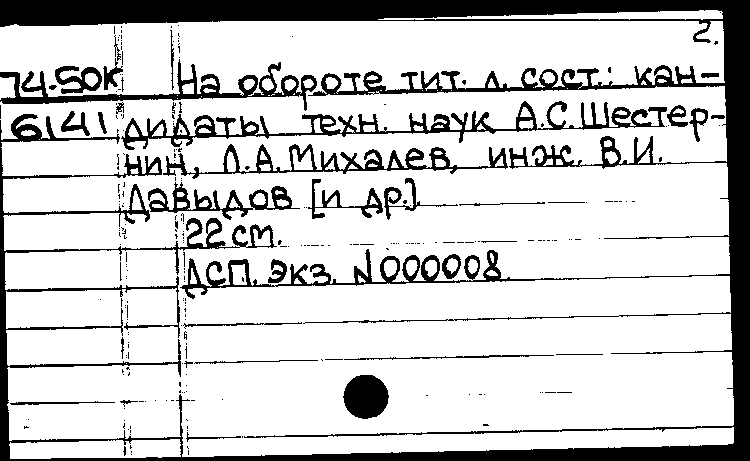 2.
74-50К На обороте тит. л. сост.: кан-
6141 дидаты техн. наук А.С.Шестер-
нин, Л.А.Михалев, инж. В.И.
Давыдов [и др.]
22 см.
ДСП. Экз. №000008